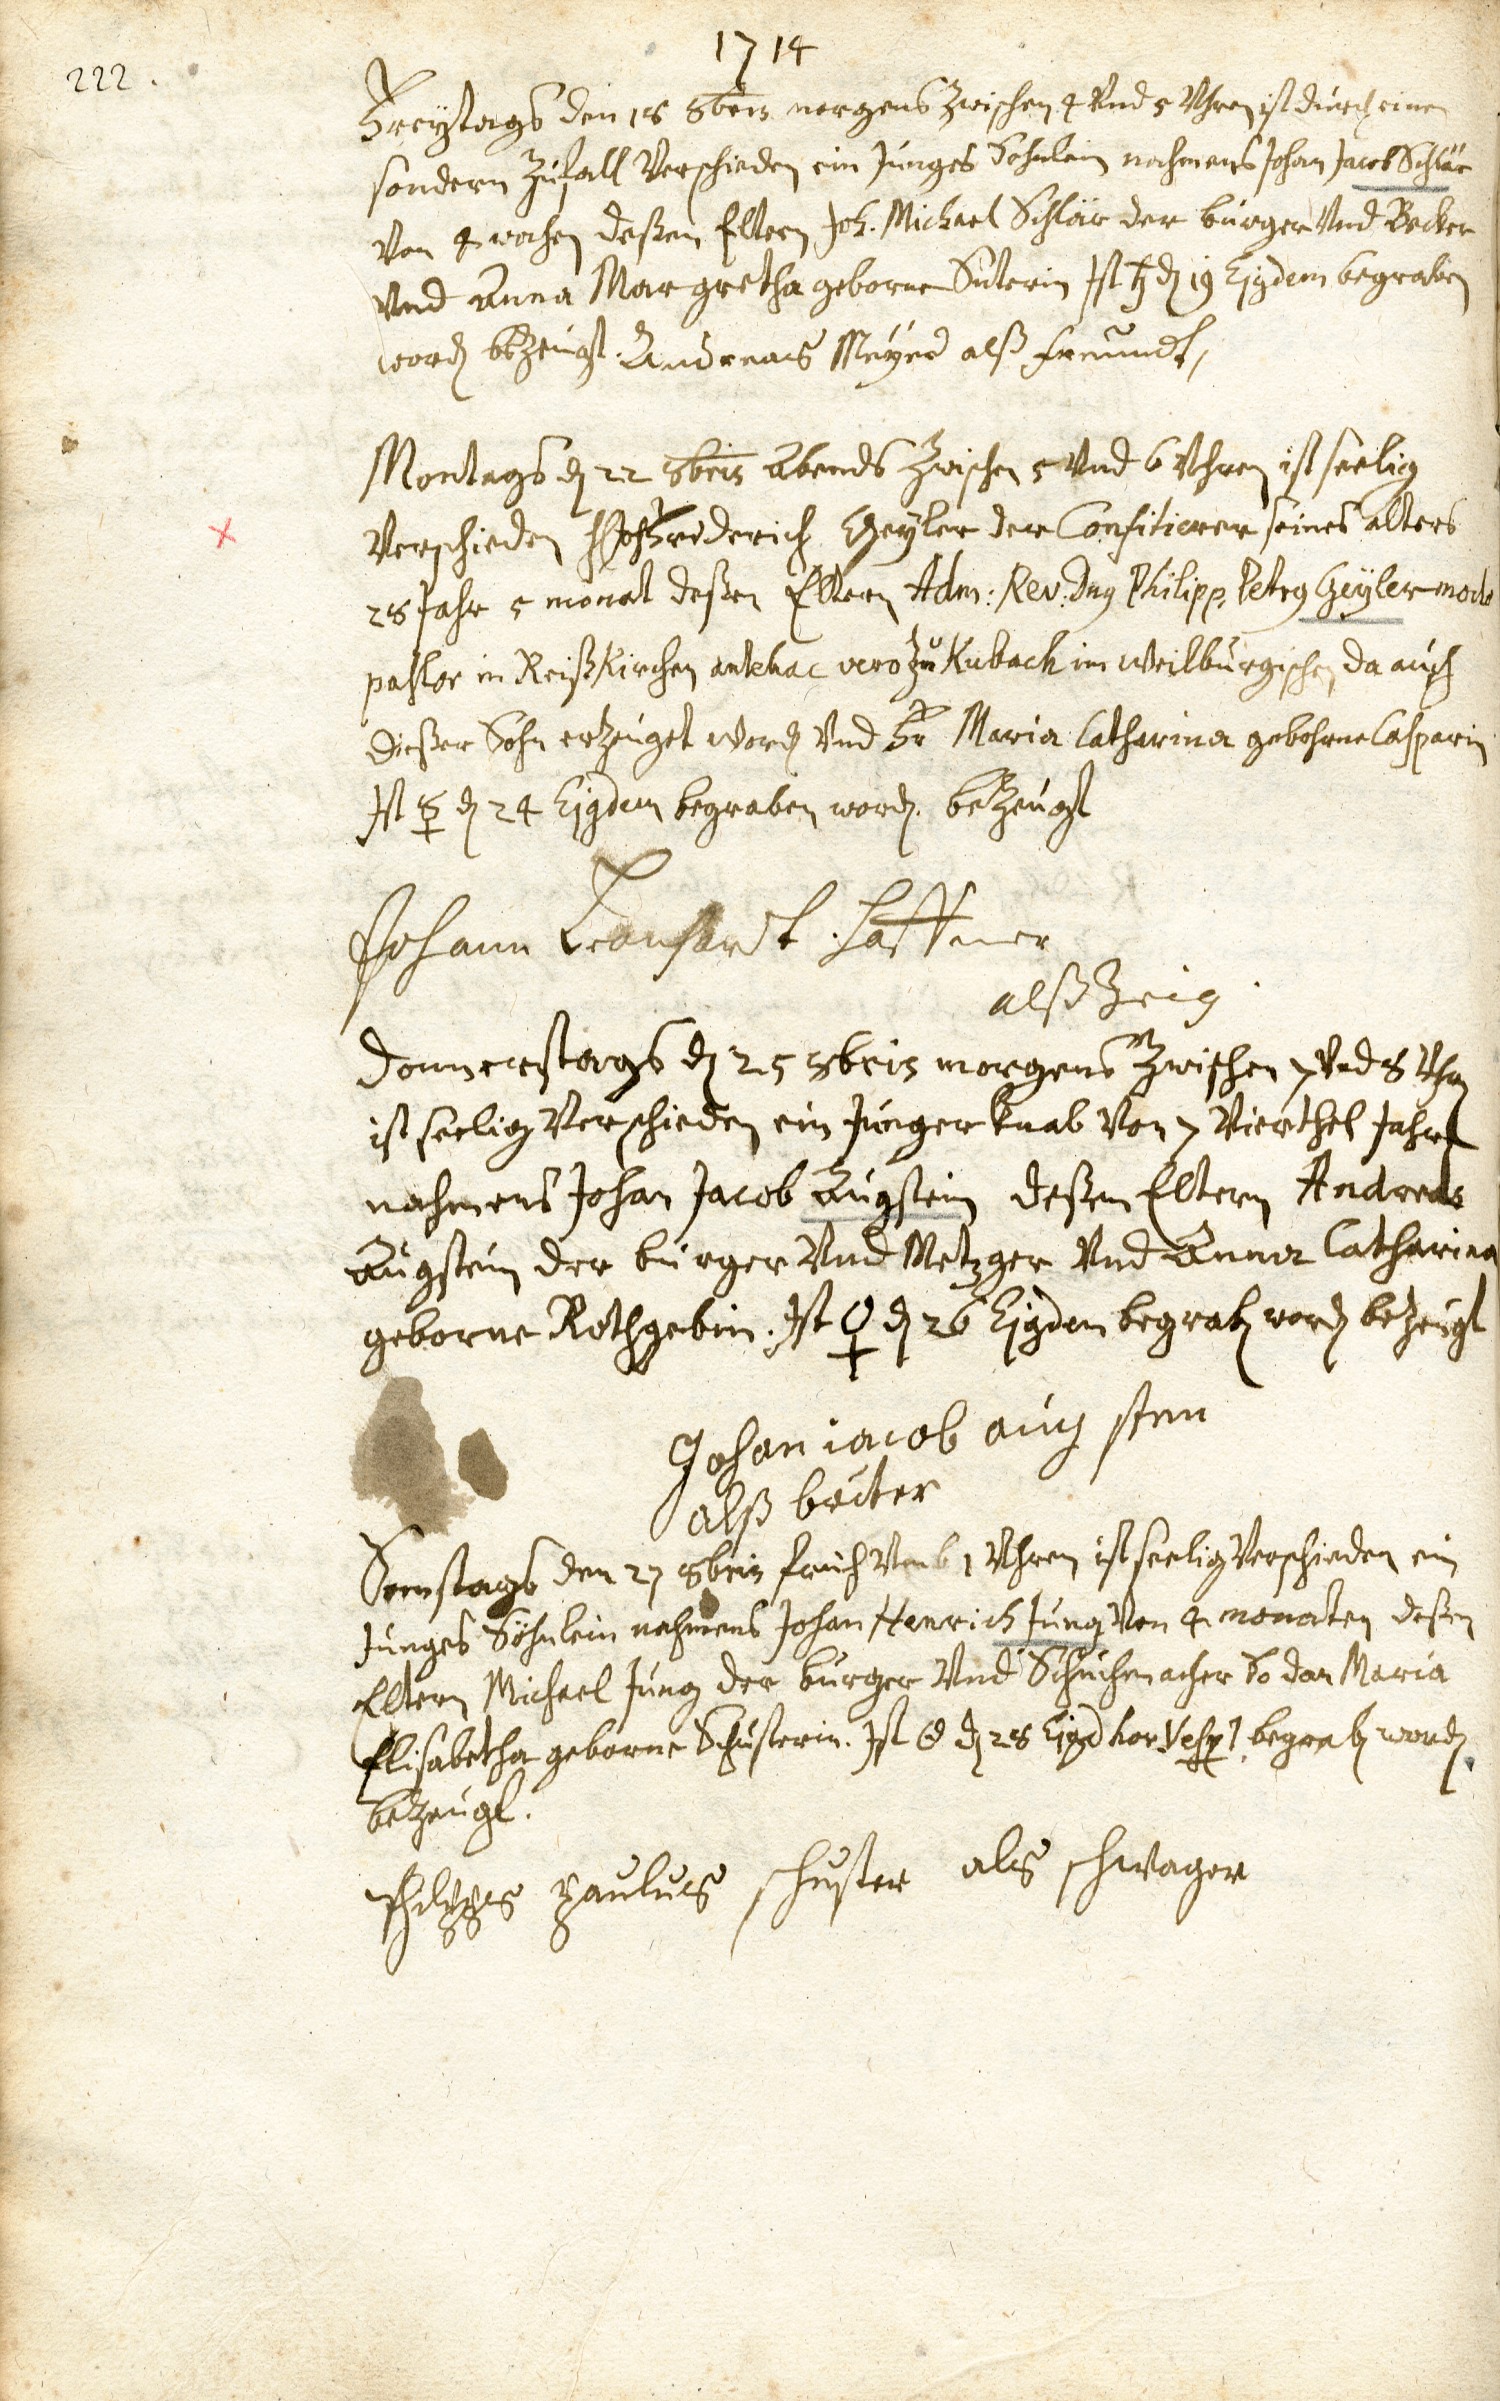 1714
222.
Freytags den 18 8bris morgens Zwischen 4 Vnd 5 Vhren ist durch einen
sondern Zufall Verschieden ein Junges Sohnlein nahmens Johan Jacob Schlär
Von 4 wochen deßen Eltern Joh. Michael Schlär der burger Vnd Becker
Vnd Anna Margretha geborne Suterin Ist ♄ d 19 Ejqdem begraben
word bezeugt. Andreas Meyer alß freundt,
Montags d 22 8bris Abends Zwischen 5 Vnd 6 Vhren ist seelig
Verschieden Friderich Geyler der Confitierer seines alters
28 Jahr 5 monat deßen Eltern Adm: Rev: Dng Philipp. Petrg Geyler modo
pastor in Reißkirchen antehac vero zu Kubach im Weilburgischen da auch
dießer Sohn erzeuget word Vnd Fr Maria Catharina gebohrne Casparin
Ist ☿ d 24 Ejqdem begraben word. bezeugt
Johann Leonhardt Haffner
alß Zeig
Donnerstags d 25 8bris morgens Zwischen 7 Vnd 8 Vhrn
ist seelig Verschieden ein Junger knab Von 7 Vierthel Jahr
nahmens Johan Jacob Augstein deßen Eltern Andreas
Augstein der burger Vnd Metzger Vnd Anna Catharina
geborne Rothgebin. Ist ♀ d 26 Ejqdem begrab word bezeugt
Johan iacob aug stein
alß bruter
Samstags den 27 8bris fruh Vmb 1 Vhren ist seelig Verschieden ein
Junges Söhnlein nahmens Johan Henrich Jung Von 4 monaten deßen
Eltern Michael Jung der burger Vnd Schuhmacher so dan Maria
Elisabetha geborne Schusterin. Ist ☉ d 28 Ejqd hor Vesp begrab word
bezeugt.
paulus schuster als schwager